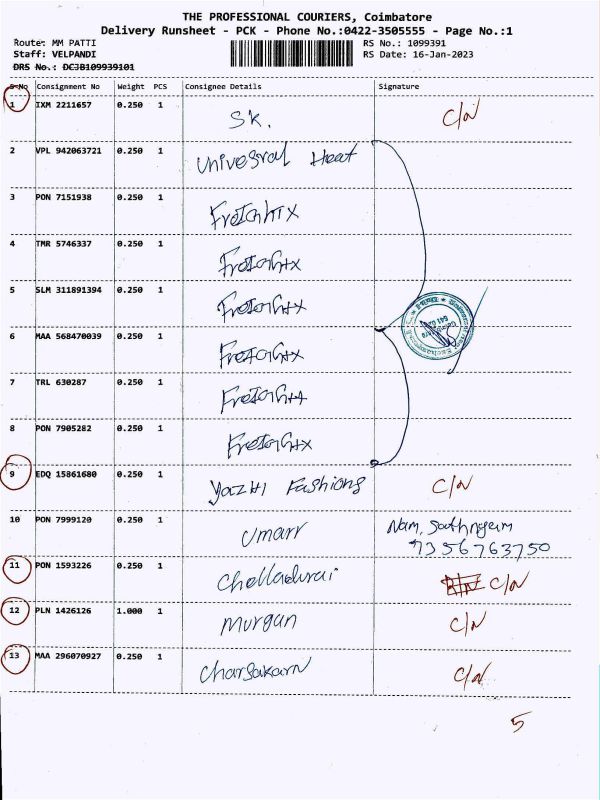 THE PROFESSIONAL COURIERS, Coimbatore
Delivery Runsheet - PCK - Phone No.:0422-3505555 - Page No.:1
Route: MM PATTI RS No.: 1099391
Staff: VELPANDI RS Date: 16-Jan-2023
DRS No.: DCJB109939101
S No Consignment No Weight PCS Consignee Details Signature
1 IXM 2211657 0.250 1 SK. C/N
2 VPL 942063721 0.250 1 Univesral Heat
3 PON 7151938 0.250 1
4 TMR 5746337 0.250 1
5 SLM 311891394 0.250 1
6 MAA 568470039 0.250 1
7 TRL 630287 0.250 1
8 PON 7905282 0.250 1
9 EDQ 15861680 0.250 1 Yazhi Fashions C/N
10 PON 7999120 0.250 1 Umarr
9356763750
11 PON 1593226 0.250 1 Chelladurai C/N
12 PLN 1426126 1.000 1 Murgan C/N
13 MAA 296070927 0.250 1 C/N
5